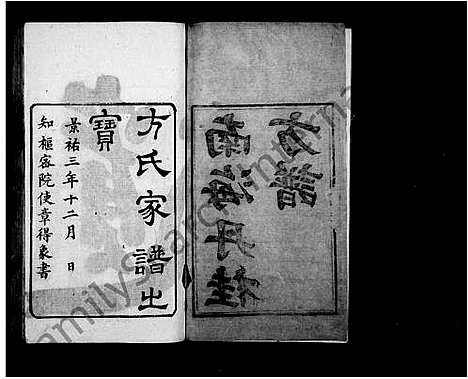 南海丹桂
方譜
方氏家譜之
寶
景祐三年十二月 日
知樞密院使章得象書
FamilySearch International